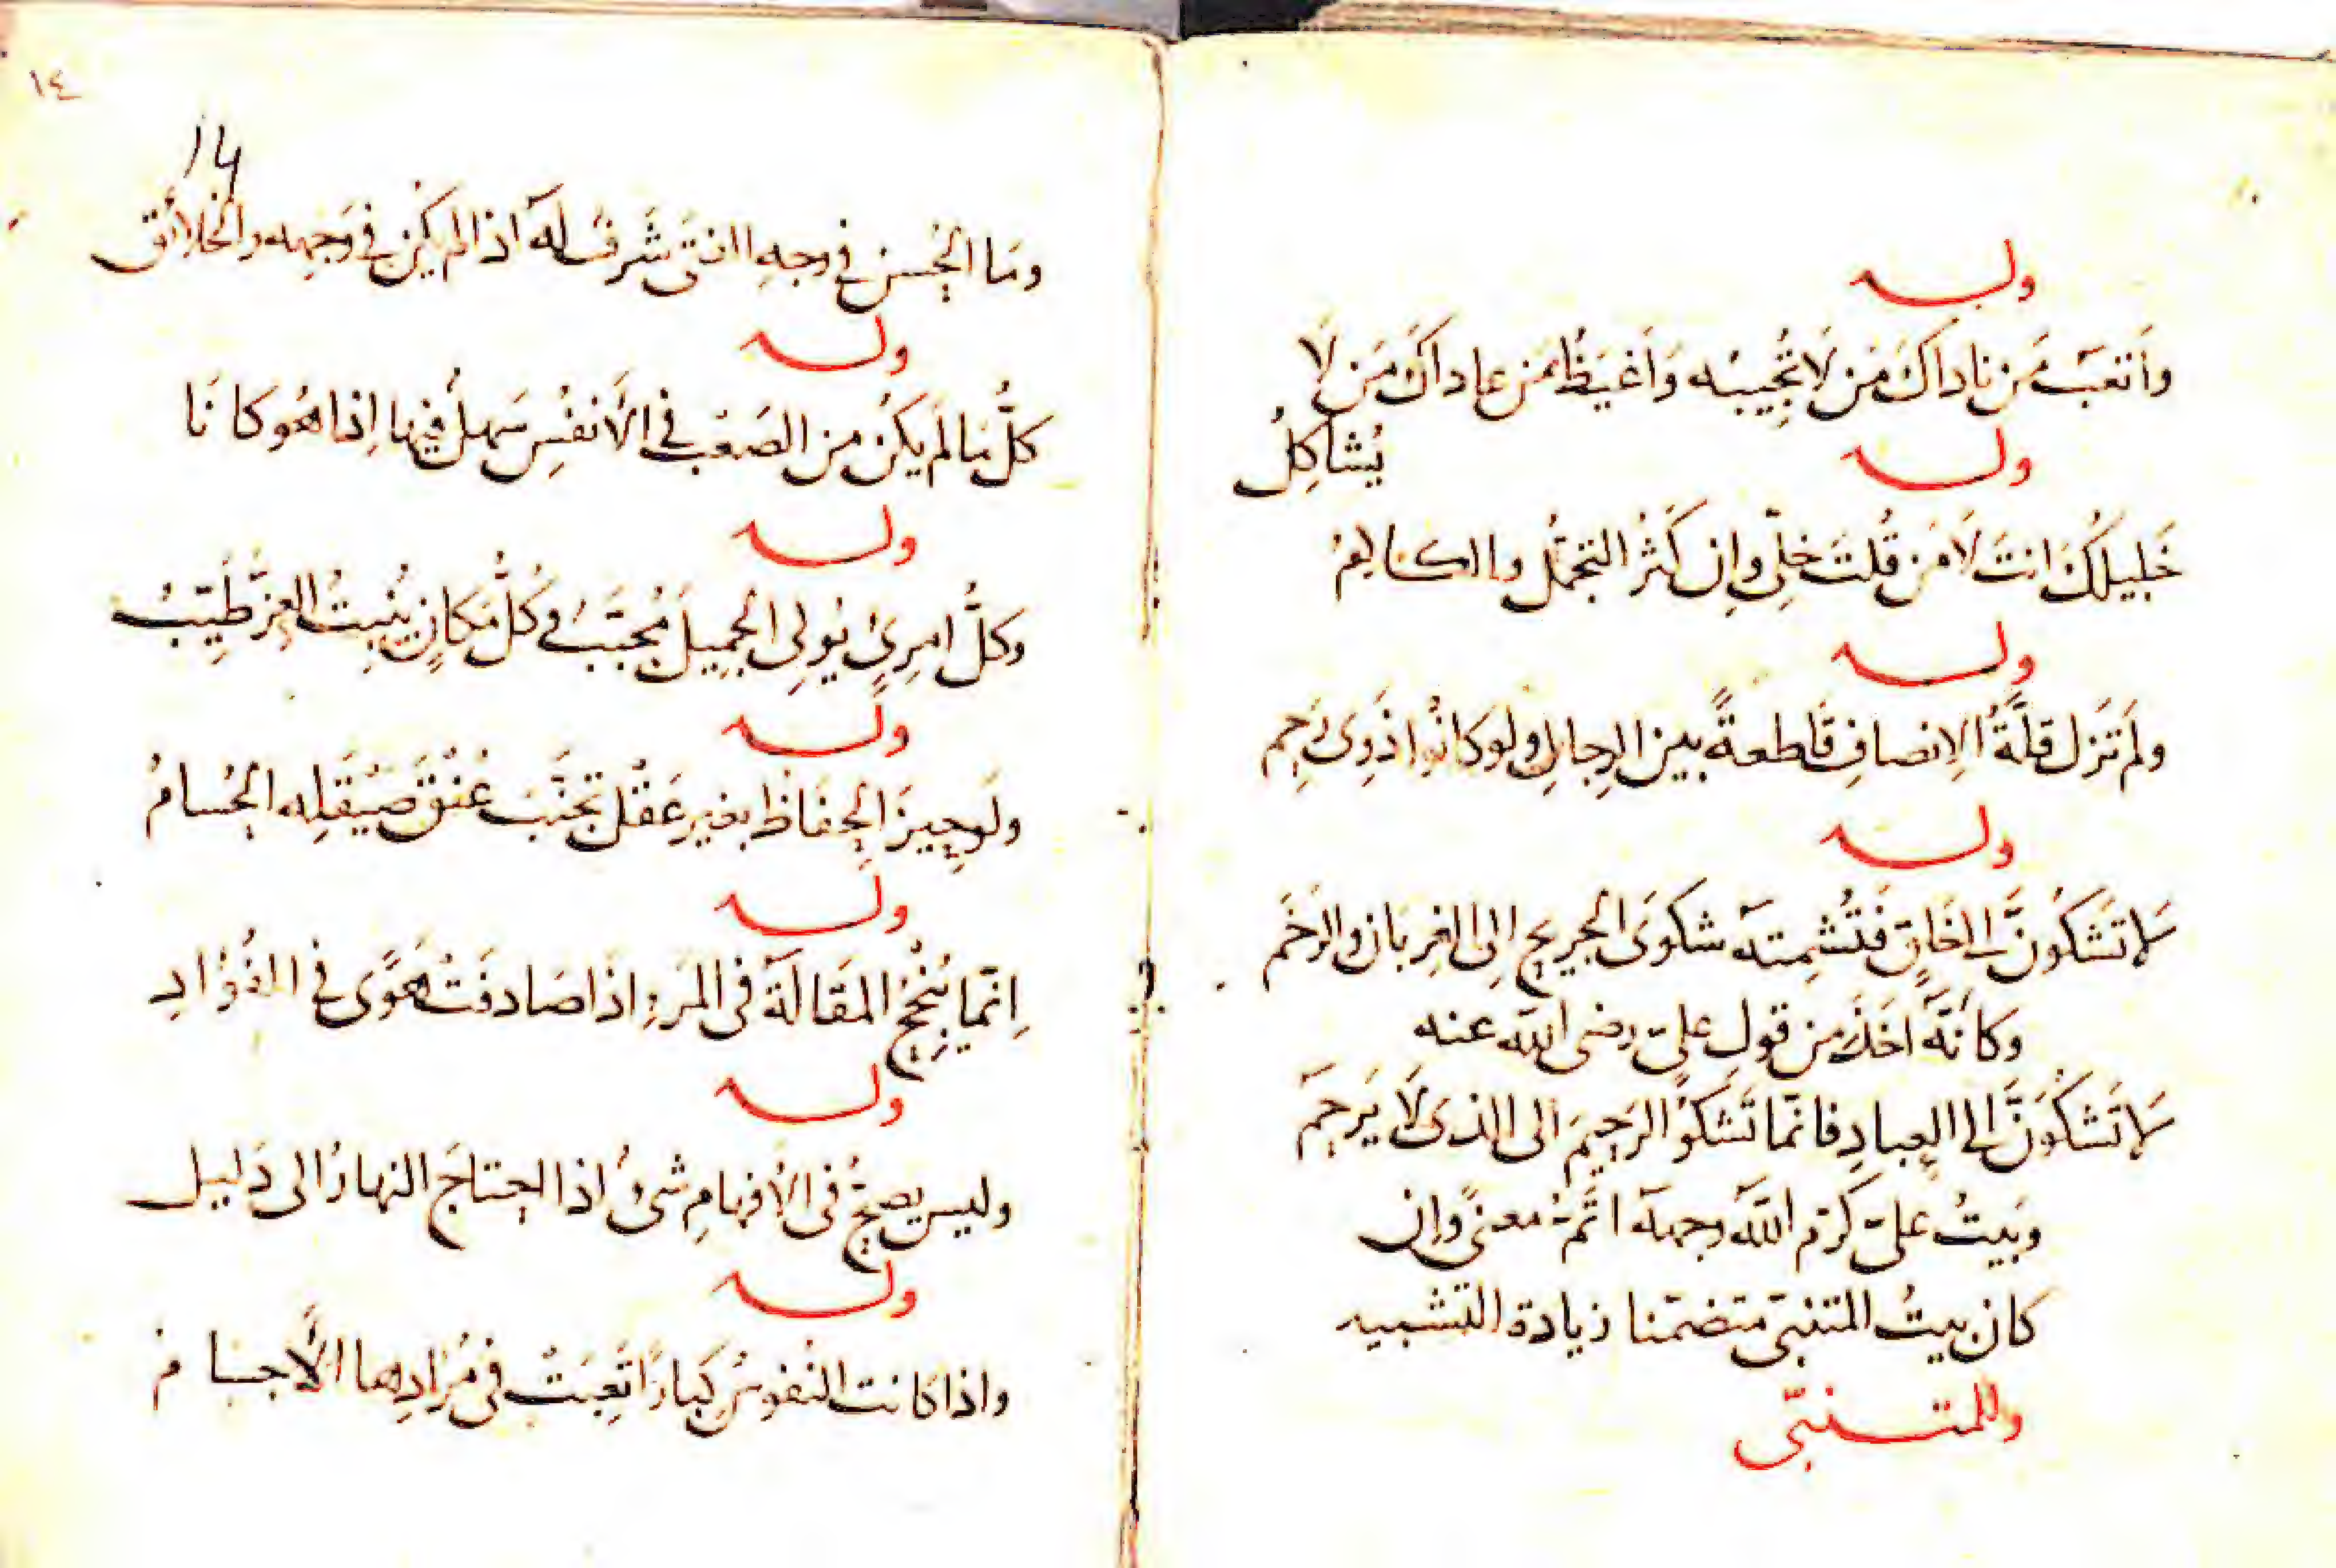 وله
وَأَتعَبُ مَن ناداكَ مَن لَا تُجِيبُه وَأَغيَظُ مَن عاداكَ مَن لَا
يُشاكِلُ
وله
خَلِيلُكَ انتَ لَا مَن قُلتَ خِلّى وإِن كَثُرَ التجمُّل والكلامُ
وله
ولم تَزل قلَّةُ الإنصافِ قَاطعةً بين الرِجالِ ولو كانُوا ذَوِى رَحِم
وله
لا تَشكُونَّ الى خَلقٍ فَتُشمِتَه شكوَى الجريحِ إلى الغِربان والرَخَم
وكأنَّه اخَذَ من قولِ علىّ رضى الله عنه
لا تَشكُوَنَّ الى العِبادِ فانّما تَشكُو الرَحِيمَ الى الذى لَا يَرحمَ
وبَيتُ علىّ كرّم اللّه وجهه اتَمّ معنىً وإن
كان بيتُ المتنبّى متضمّنا زيادة التشبيه
وللمتنبّى
١٤
14
ومَا الحُسن فى وجهِ الفتَى شَرفٌ له اذا لم يكن فى وَجهِه والخلائق
وله
كلُّ مَا لم يكن من الصَعب فى الأَنفُسِ سَهلٌ فيها إذا هُو كانَا
وله
وكلُّ امرِئٍ يُولِى الجَمِيلَ مُحَبَّبٌ وكُلُّ مَكانٍ يُنبِتُ العِزَّ طَيِّبُ
وله
ولَو حِيزَ الحِفَاظُ بغيرِ عَقلٍ تَجنَّبَ عُنقَ صَيقَلِه الحُسامُ
وله
إنّما تُنجِحُ المقَالَة فى المَرءِ اذَا صَادفَت هَوًى فى الفُؤادِ
وله
وليس يصحُّ فى الأفهامِ شىءٌ اذا احتاجَ النهارُ الى دَليل
وله
واذا كانت النفُوسُ كِبارًا تَعِبَتْ فى مُرَادِها الأجسام